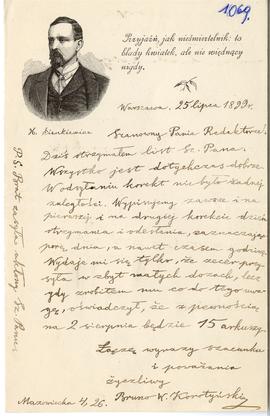 1069.
Przyjaźń, jak nieśmiertelnik: to
blady kwiatek, ale nie więdnący
nigdy.
Warszawa, 25 lipca 1899 r.
H. Sienkiewicz
Szanowny Panie Redaktorze!
Dziś otrzymałem list Sz. Pana.
Wszystko jest dotychczas dobrze.
W odsyłaniu korekt nie było żadnej
zaległości. Wypisujemy zawsze i na
pierwszej i na drugiej korekcie dzień
otrzymania i odesłania, zaznaczając
porę dnia, a nawet czasem godzinę.
Wydaje mi się tylko, że zecer przy-
syła w zbyt małych dozach, lecz
gdy zrobiłem mu co do tego uwa-
gę, oświadczył, że z pewnością
na 2 sierpnia będzie 15 arkuszy.
Łączę wyrazy szacunku
i poważania
życzliwy
Bruno W. Korotyński
Mazowiecka 4/26.
P.S. Brat załącza ukłony Sz. Panu.